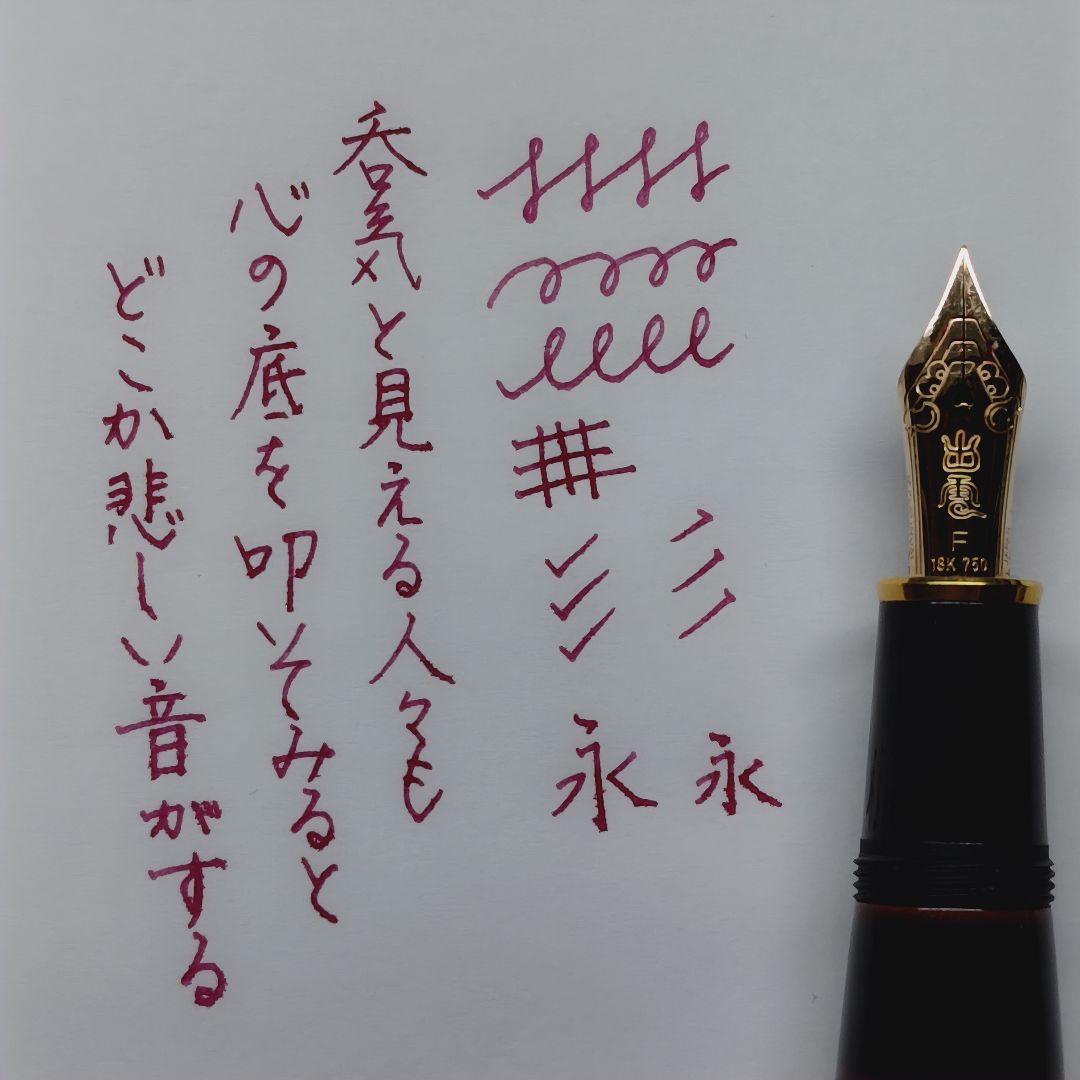 永 永
呑気と見える人々も
心の底を叩そみると
どこか悲しい音がする
出雲
F
18K 750